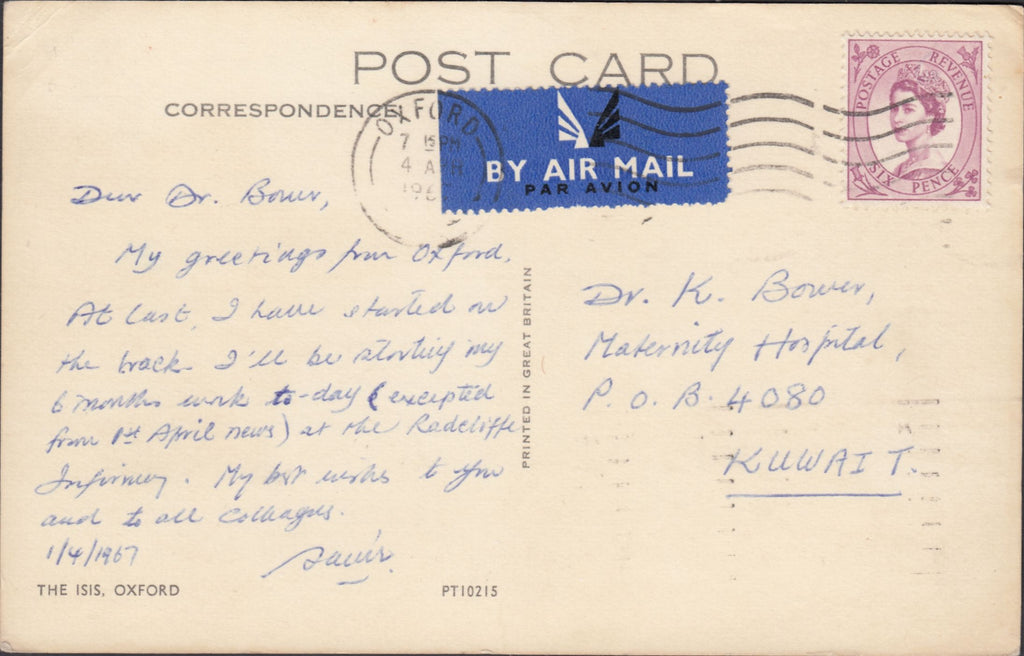 POST CARD
CORRESPONDENCE
OXFORD
7 15 PM
4 APR
196
BY AIR MAIL
PAR AVION
POSTAGE REVENUE
SIX PENCE
Dear Dr. Bower,
My greetings from Oxford.
At last, I have started on
the track. I'll be starting my
6 months work to-day (excepted
from 1st April news) at the Radcliffe
Infirmary. My best wishes to you
and to all colleagues.
1/4/1967
THE ISIS, OXFORD
PT10215
PRINTED IN GREAT BRITAIN
Dr. K. Bower,
Maternity Hospital,
P.O.B. 4080
KUWAIT.